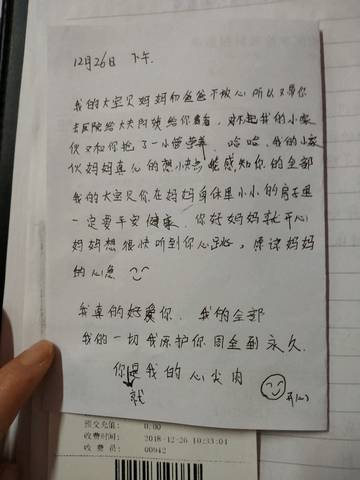 12月26日 下午
我的大宝贝妈妈和爸爸不放心所以又带你
去医院给大夫阿姨给你看看，对不起我的小家
伙又和你抱了一小管营养，哈哈，我的小家
伙妈妈真心的想快点能感知你的全部
我的大宝贝你在妈妈身体里小小的房子里
一定要平安健康，你好妈妈就开心
妈妈想很快听到你心跳，原谅妈妈
的心急
我真的好爱你，我的全部
我的一切我愿护你周全到永久
你就是我的心尖肉
开心
预交充值： 0.00
收费时间： 2018-12-26 10:33:01
收 费 员： 00942